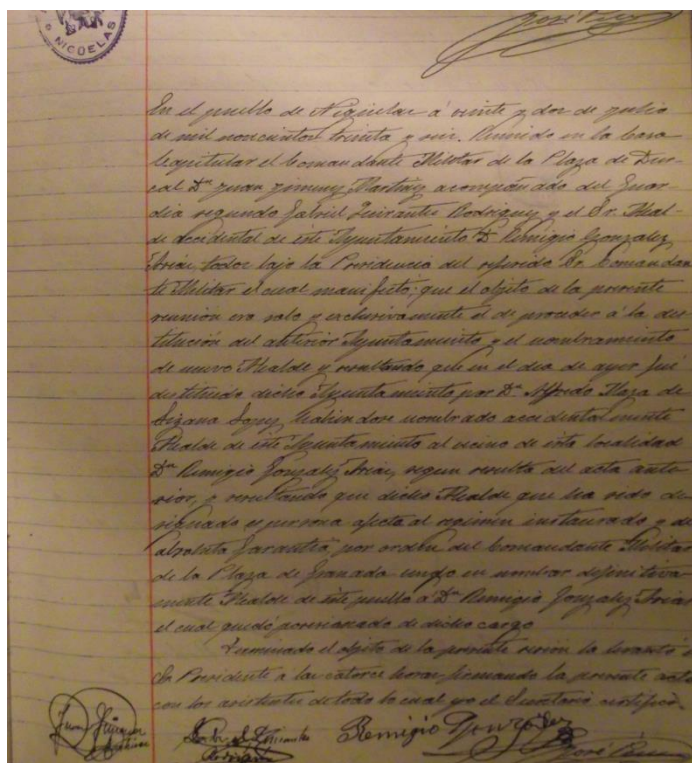 NIGÜELAS
José
En el pueblo de Nigüelas á veinte y dos de Julio
de mil novecientos treinta y seis. Reunido en la Casa
Capitular el Comandante Militar de la Plaza de Dur-
cal Dn Juan Jimenez Martinez acompañado del Guar-
dia segundo Gabriel Quirantes Rodriguez y el Sr. Alcal-
de accidental de éste Ayuntamiento D. Remigio Gonzalez
Arias todos bajo la Presidencia del referido Sr. Comandan
te Militar el cual manifestó; que el objeto de la presente
reunión era solo y exclusivamente el de proceder á la des-
titución del anterior Ayuntamiento y el nombramiento
de nuevo Alcalde y resultando que en el dia de ayer fué
destituido dicho Ayuntamiento por Dn Alfredo Plaza de
Lizana Lopez habiendose nombrado accidentalmente
Alcalde de éste Ayuntamiento al vecino de ésta localidad
Dn Remigio Gonzalez Arias, segun resulta del acta ante-
rior, y resultando que dicho Alcalde que ha sido de
signado es persona afecta al regimen instaurado y de
absoluta garantia por orden del Comandante Militar
de la Plaza de Granada vengo en nombrar definitiva
mente Alcalde de éste pueblo á Dn Remigio Gonzalez Arias
el cual quedó posesionado de dicho cargo
Terminado el objeto de la presente sesión la levantó
Presidente a las catorce horas, firmando la presente acta
con los asistentes de todo lo cual yo el Secretario certifico.
Juan Jimenez
Martinez
Gabriel Quirantes
Rodriguez
Remigio Gonzalez
José